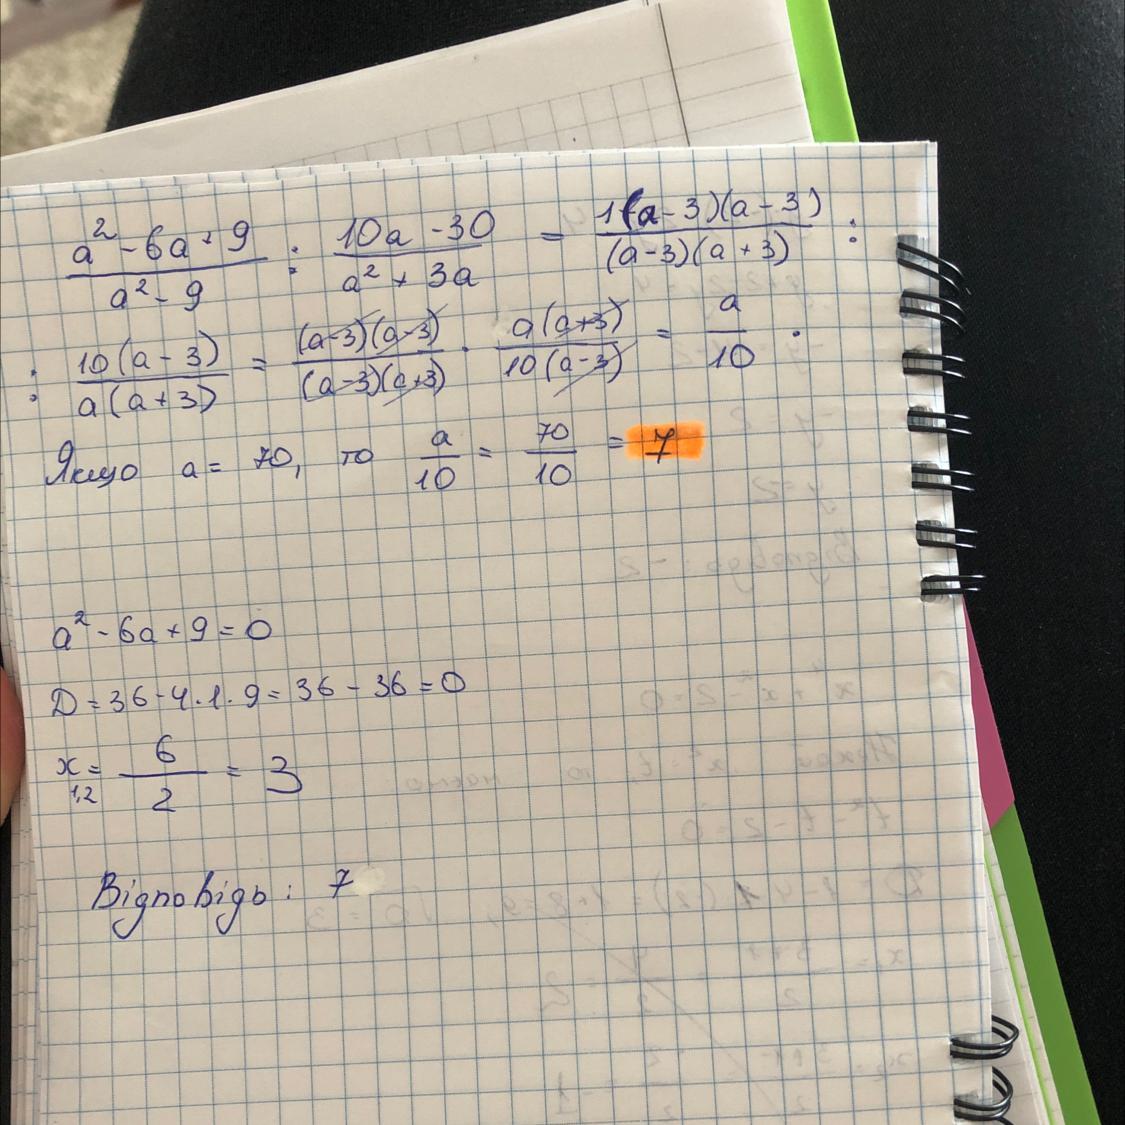 a² - 6a + 9 / a² - 9 : 10a - 30 / a² + 3a = 1(a - 3)(a - 3) / (a - 3)(a + 3) :
: 10(a - 3) / a(a + 3) = (a-3)(a-3) / (a-3)(a+3) · a(a+3) / 10(a-3) = a / 10 .
Якщо a = 70, то a / 10 = 70 / 10 = 7
a² - 6a + 9 = 0
D = 36 - 4 · 1 · 9 = 36 - 36 = 0
x 1,2 = 6 / 2 = 3
Відповідь: 7